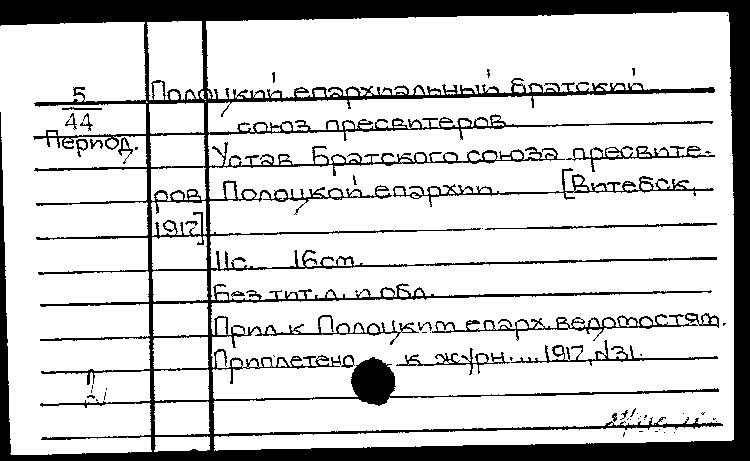 5
44
Период.
Полоцкий епархиальный братский
союз пресвитеров
Устав Братского союза пресвите-
ров Полоцкой епархии. [Витебск,
1917].
11с. 16см.
Без тит. л. и обл.
Прил. к Полоцким епарх. ведомостям.
Приплетено к журн.... 1917, №31.